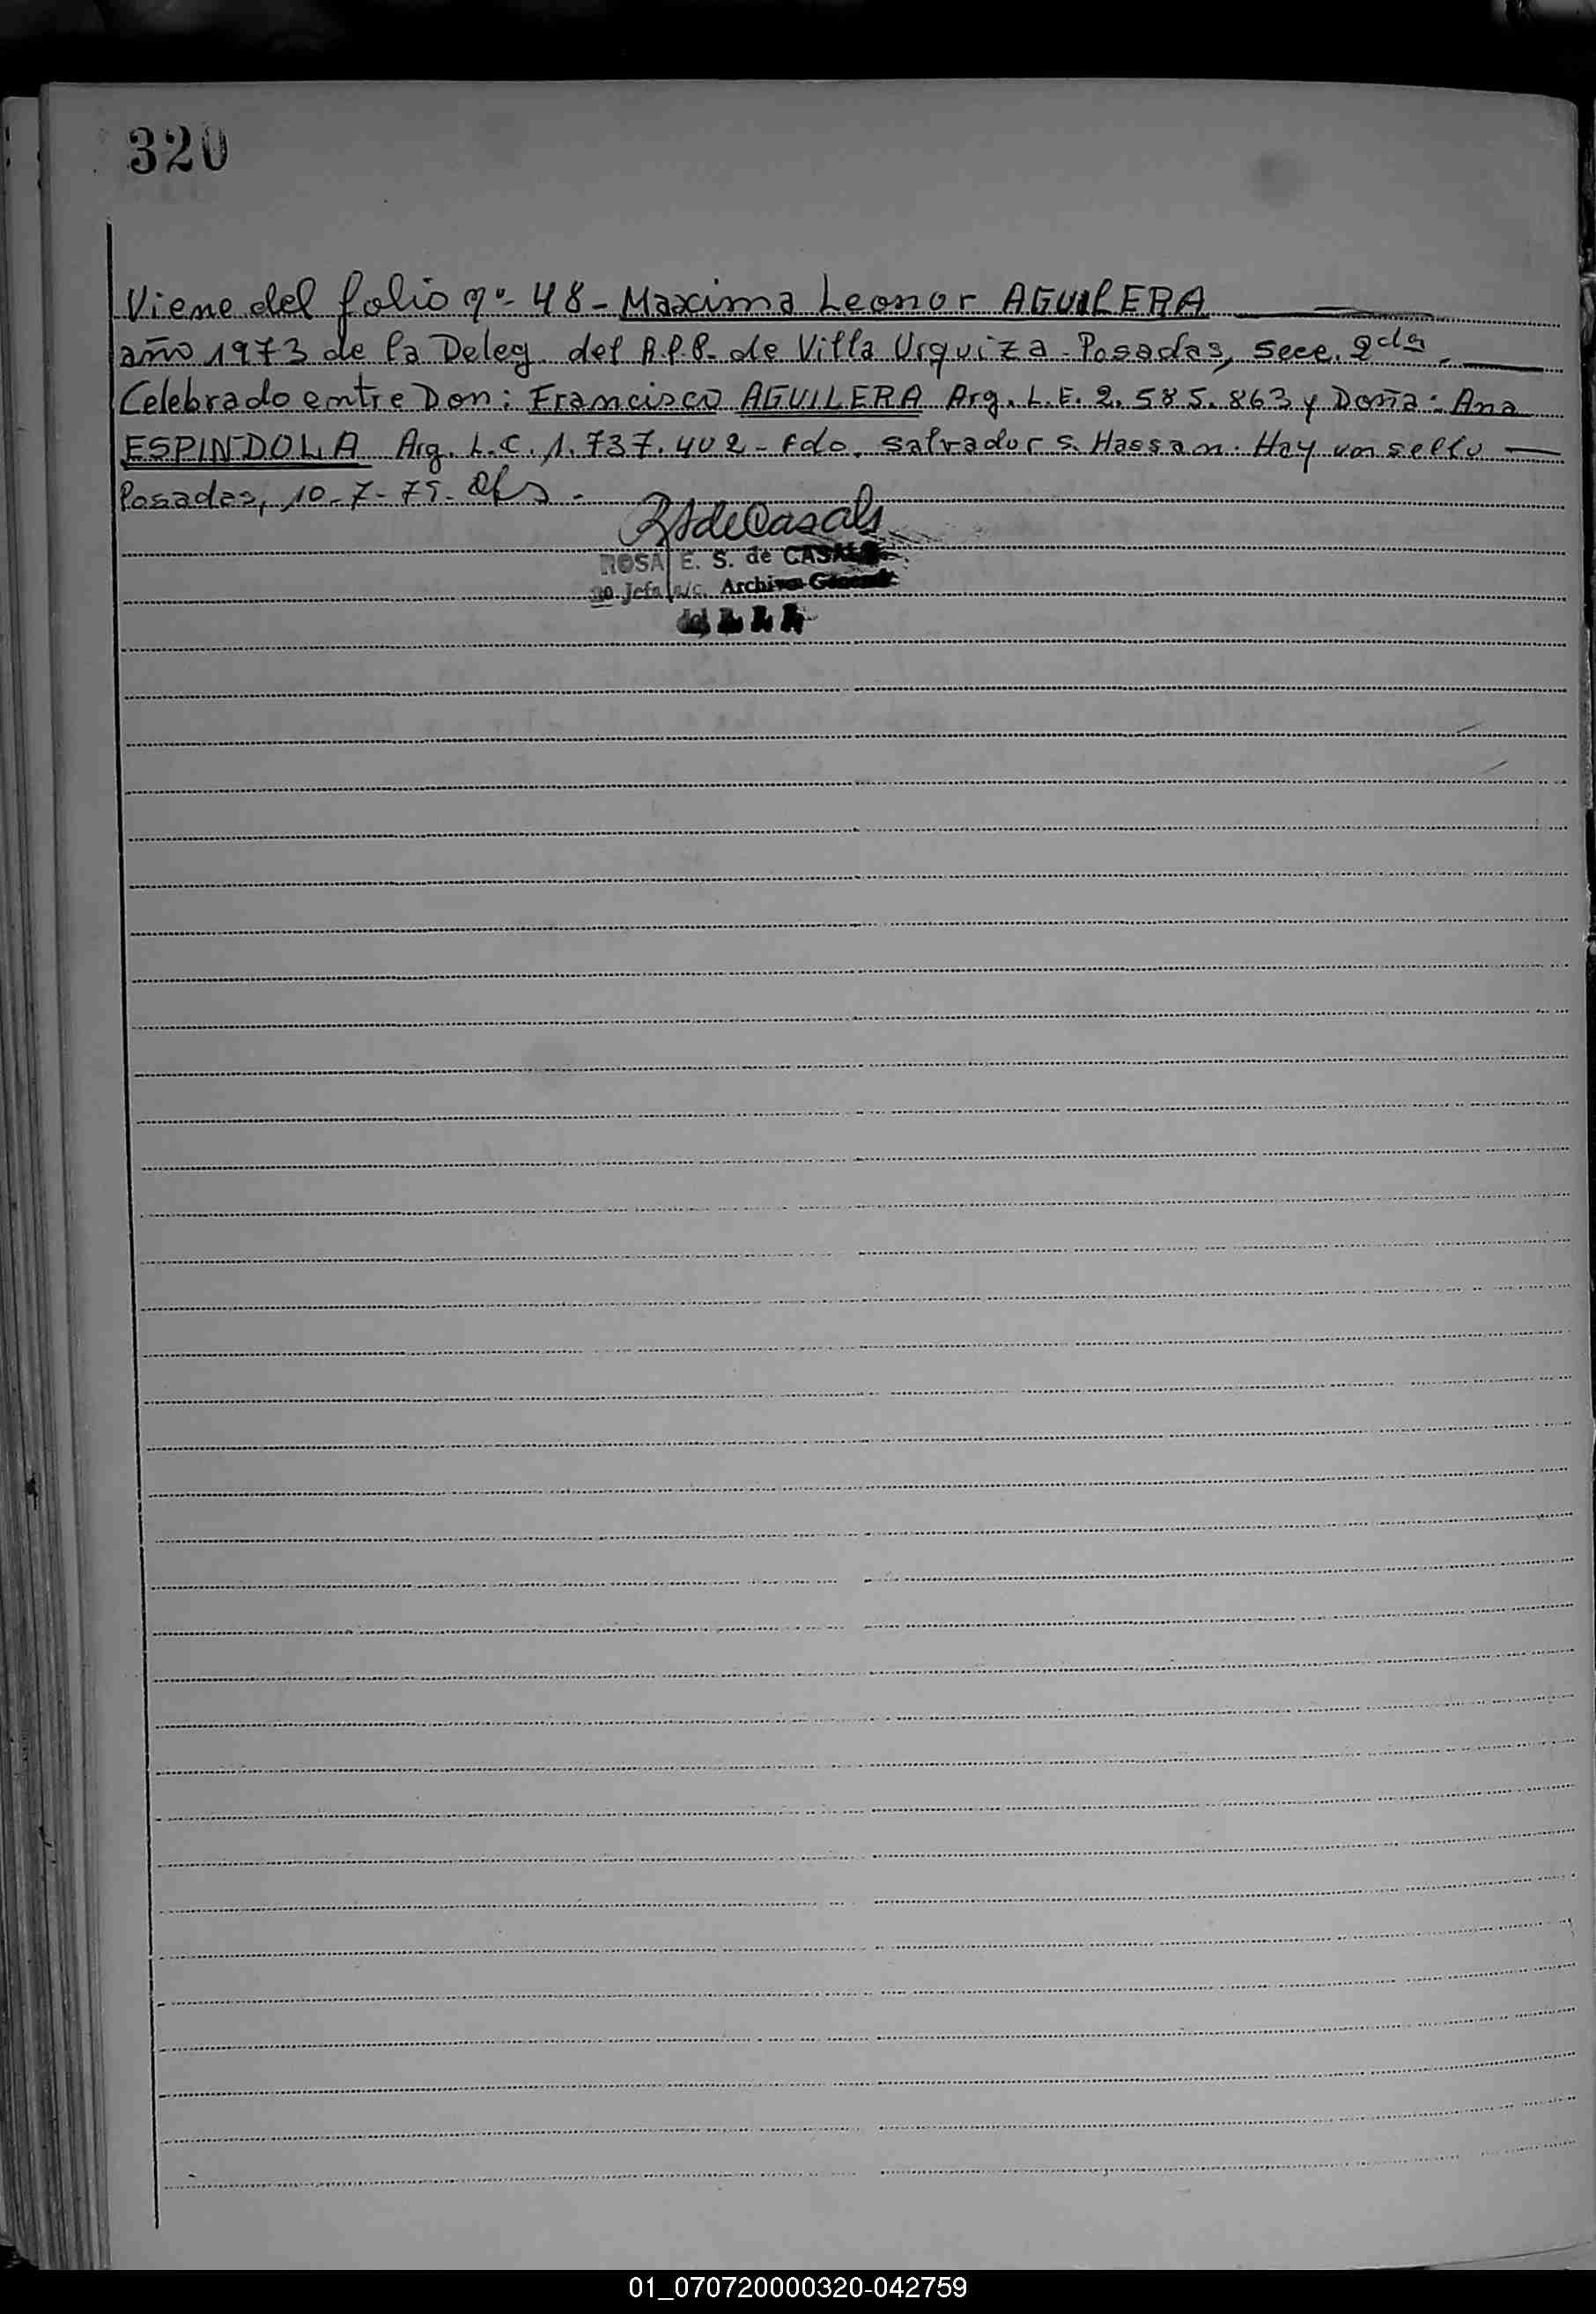 320
Viene del folio nº- 48- Maxima Leonor AGUILERA
año 1973 de la Deleg. del R.P.P. de Villa Urquiza - Posadas, Secc. 2da.
Celebrado entre Don: Francisco AGUILERA Arg. L.E. 2.585.863 y Doña: Ana
ESPINDOLA Arg. L.C. 1.737.402 - fdo. Salvador S. Hassan. Hay un sello
Posadas, 10-7-75.
RSdeCasals
ROSA E. S. de CASALS
Jefa a/c. Archivo General
del
01_070720000320-042759